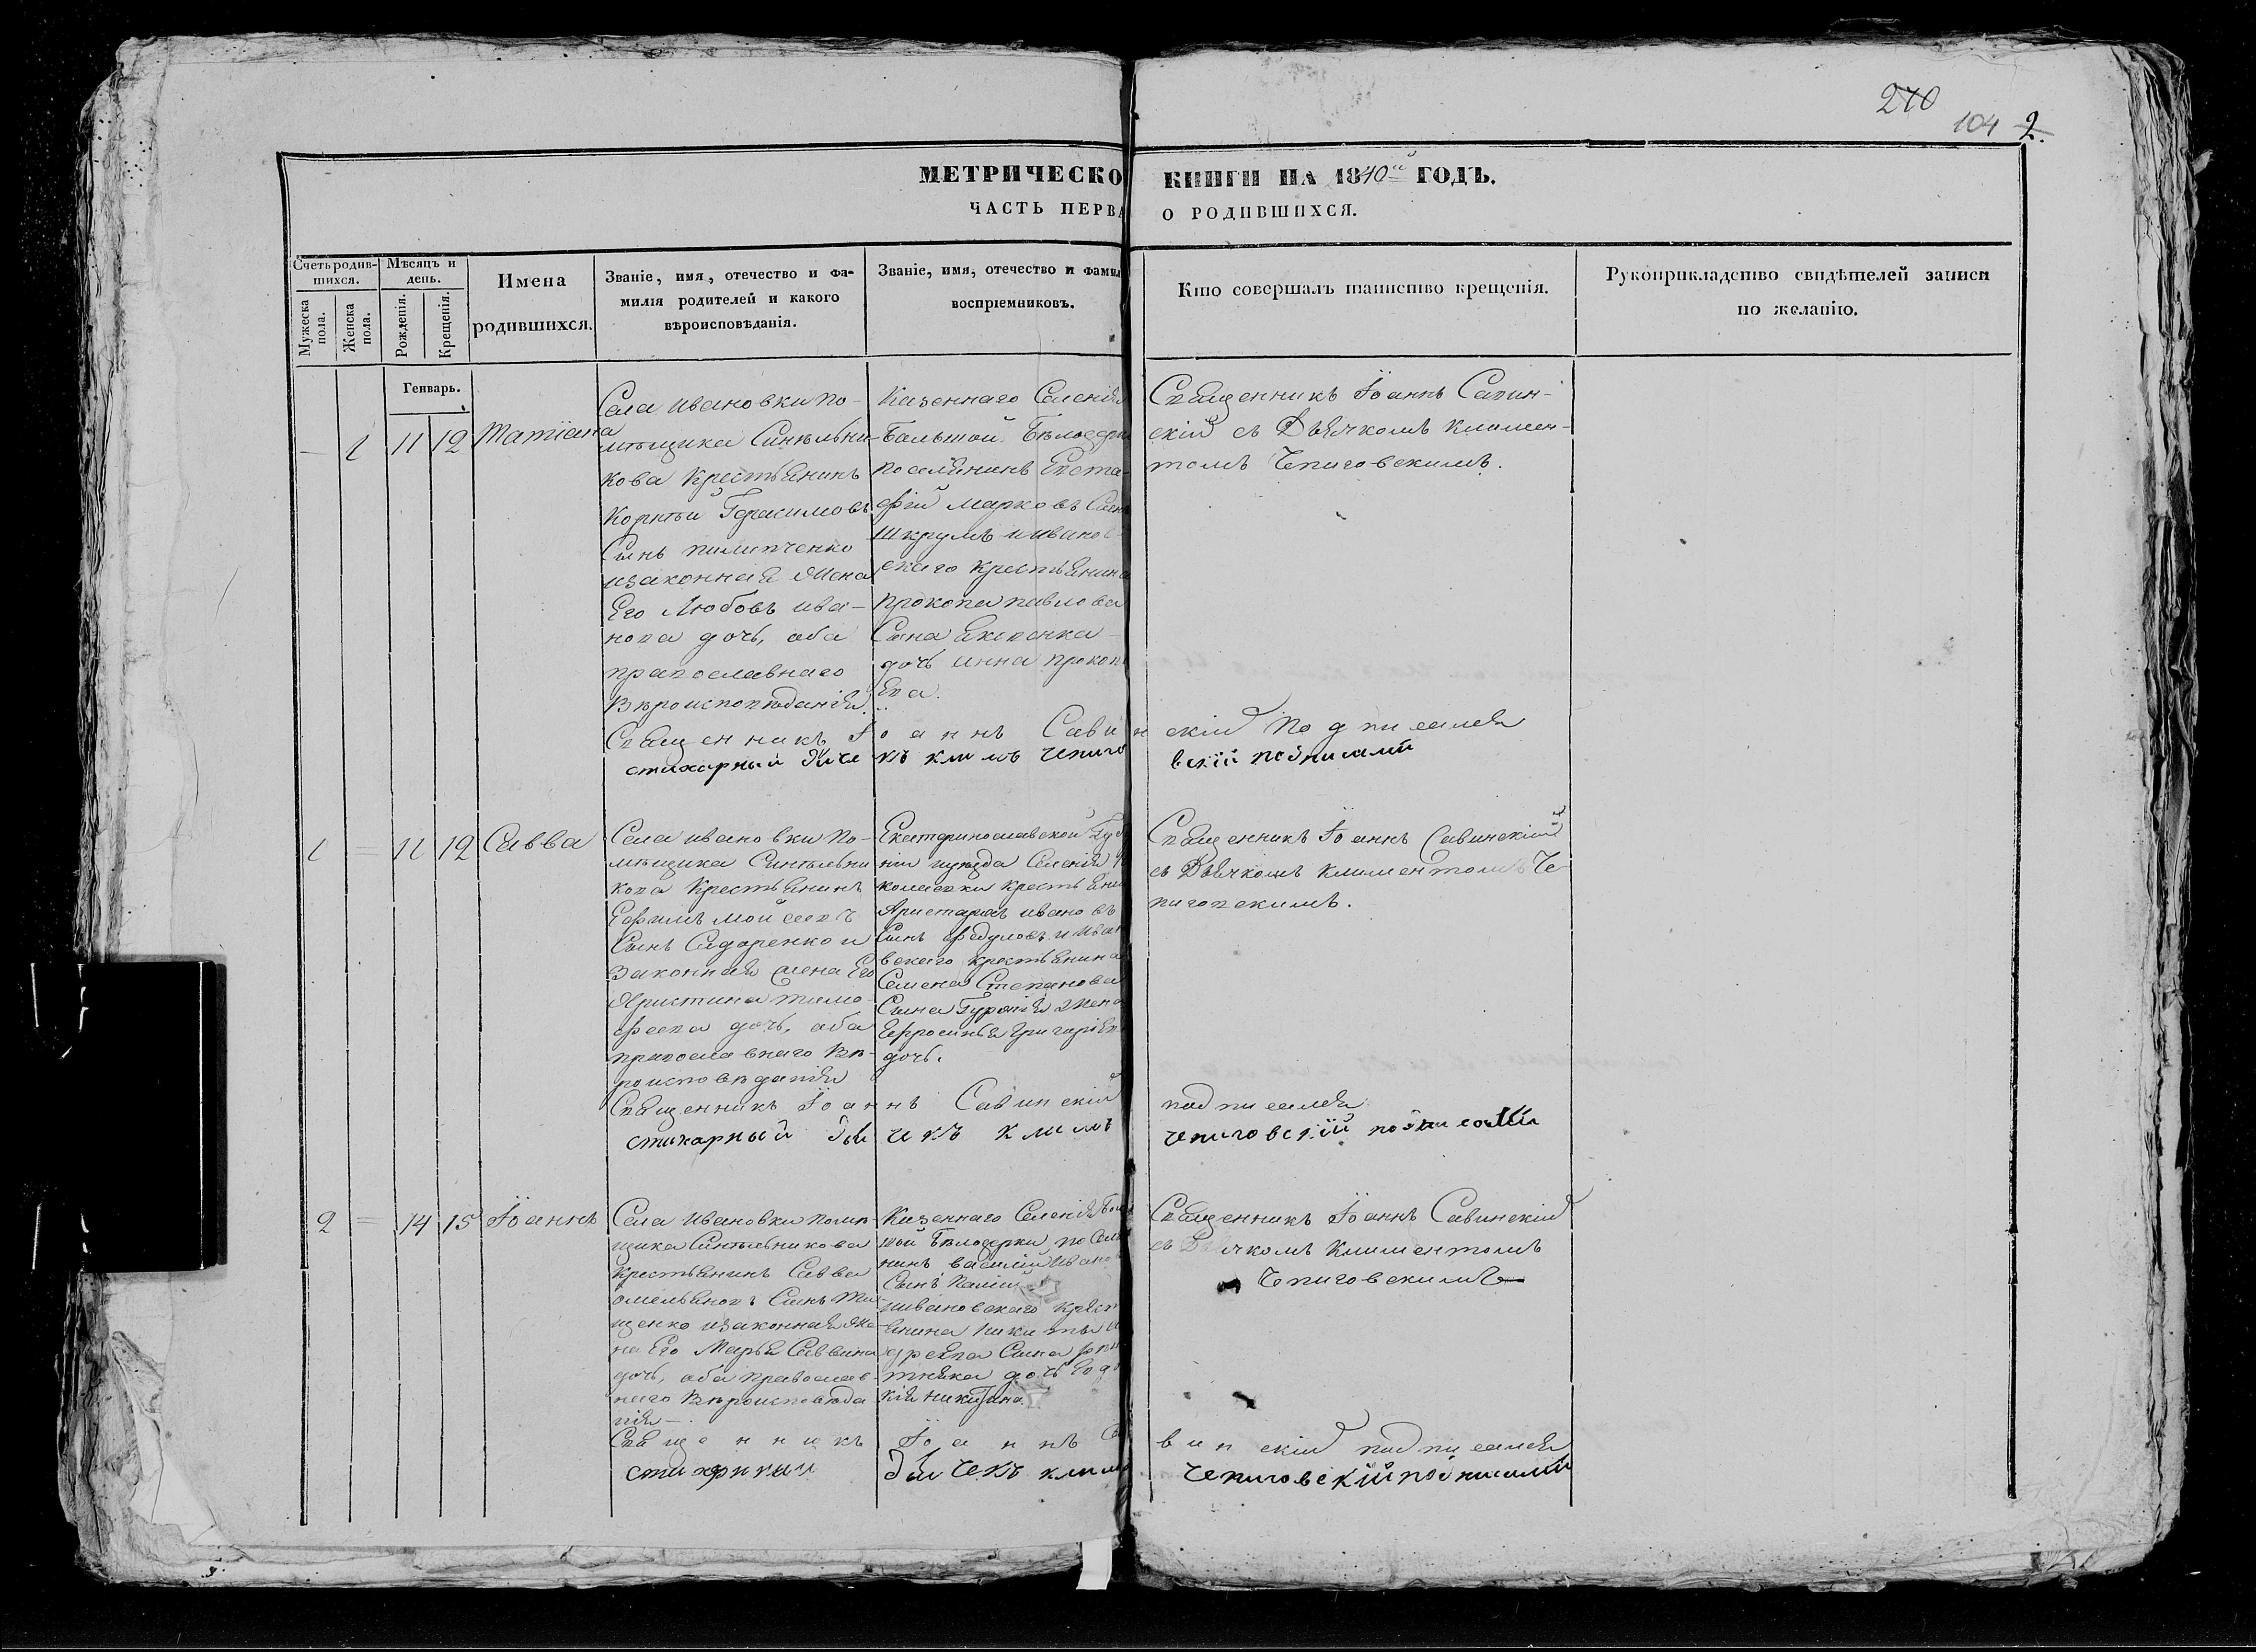 270
104 2.
МЕТРИЧЕСКО КНИГИ НА 1840й ГОДЪ.
ЧАСТЬ ПЕРВА О РОДИВШИХСЯ.
Счетъ родив-
шихся.
Мужеска пола.
Женска пола.
Мѣсяцъ и
день.
Рожденія.
Крещенія.
Имена
родившихся.
Званіе, имя, отечество и фа-
милія родителей и какого
вѣроисповѣданія.
Званіе, имя, отечество и фамил
воспріемниковъ.
Кто совершалъ таинство крещенія.
Рукоприкладство свидѣтелей записи
по желанію.
Генварь.
— 1 11 12 Татіана
Села Ивановки по-
мѣщика Синѣльни-
кова Крестьянинъ
Корнѣй Герасимовъ
Сынъ пилипченко
изаконная Жена
Его Любовь ива-
нова дочь, оба
православнаго
Вѣроисповѣданія.
Казеннаго Селенія
Большой Бѣлозерки
поселянинъ Евста-
фій Марковъ Сынъ
Шкрумъ и иванов
скаго крестьянина
Прокопа павлова
Сына
дочь Анна прокоп
Ева.
Священникъ Іоаннъ Савин-
скій съ Дьячкомъ Климен-
томъ Чепиговскимъ.
Священникъ Іоаннъ Савинскій Подписался
стихарный дьячекъ климъ чепиговскій подписалсй
1 = 11 12 Савва
Села ивановки По-
мѣщика Синѣльни
кова Крестьянинъ
Ефимъ мойсеевъ
Сынъ Сидоренко и
Законная жена Его
Христина тимо-
феева дочь, оба
православнаго Вѣ-
роисповѣданія
Екатеринославской Губ
ніи уѣзда Селенія
крестьяни
Аристархъ ивановъ
Сынъ Федуловъ и Иван
вскаго крестьянина
Семена Степанова
Сына Жена
Ефросинья Григоріев
дочь.
Священникъ Іоаннъ Савинскій
съ Дьячкомъ Климентомъ Че-
пиговскимъ.
Священникъ Іоаннъ Савинскій подписался
стихарный дьячикъ климъ чепиговскій подписалсй
2 = 14 15 Іоаннъ
Села Ивановки помѣ-
щика Синѣльникова
Крестьянинъ Савва
омельяновъ Сынъ Ти-
щенко изаконная Же
на Его Марья Саввина
дочь, оба православ-
наго Вѣроисповѣда
нія —.
Казеннаго Селенія Бол
шой Бѣлозерки поселя
нинъ василій Ивано
Сынъ
иивановскаго крест
янина Никиты
дреева Сына
дочь Евдо
кія никитина
Священникъ Іоаннъ Савинскій
съ Дьячкомъ Климентомъ
Чепиговскимъ
Священникъ Іоаннъ Савинскій подписался
стихарный дьячекъ климъ Чепиговскій подписалсй